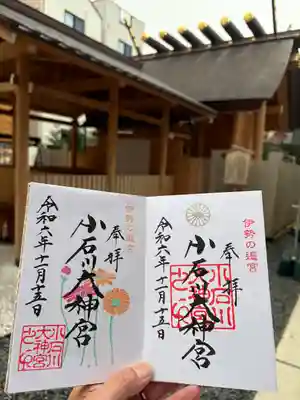 伊勢の遥宮
奉拝
小石川大神宮
令和六年十一月十五日
小石川
大神宮
伊勢の遥宮
奉拝
小石川大神宮
令和六年十一月十五日